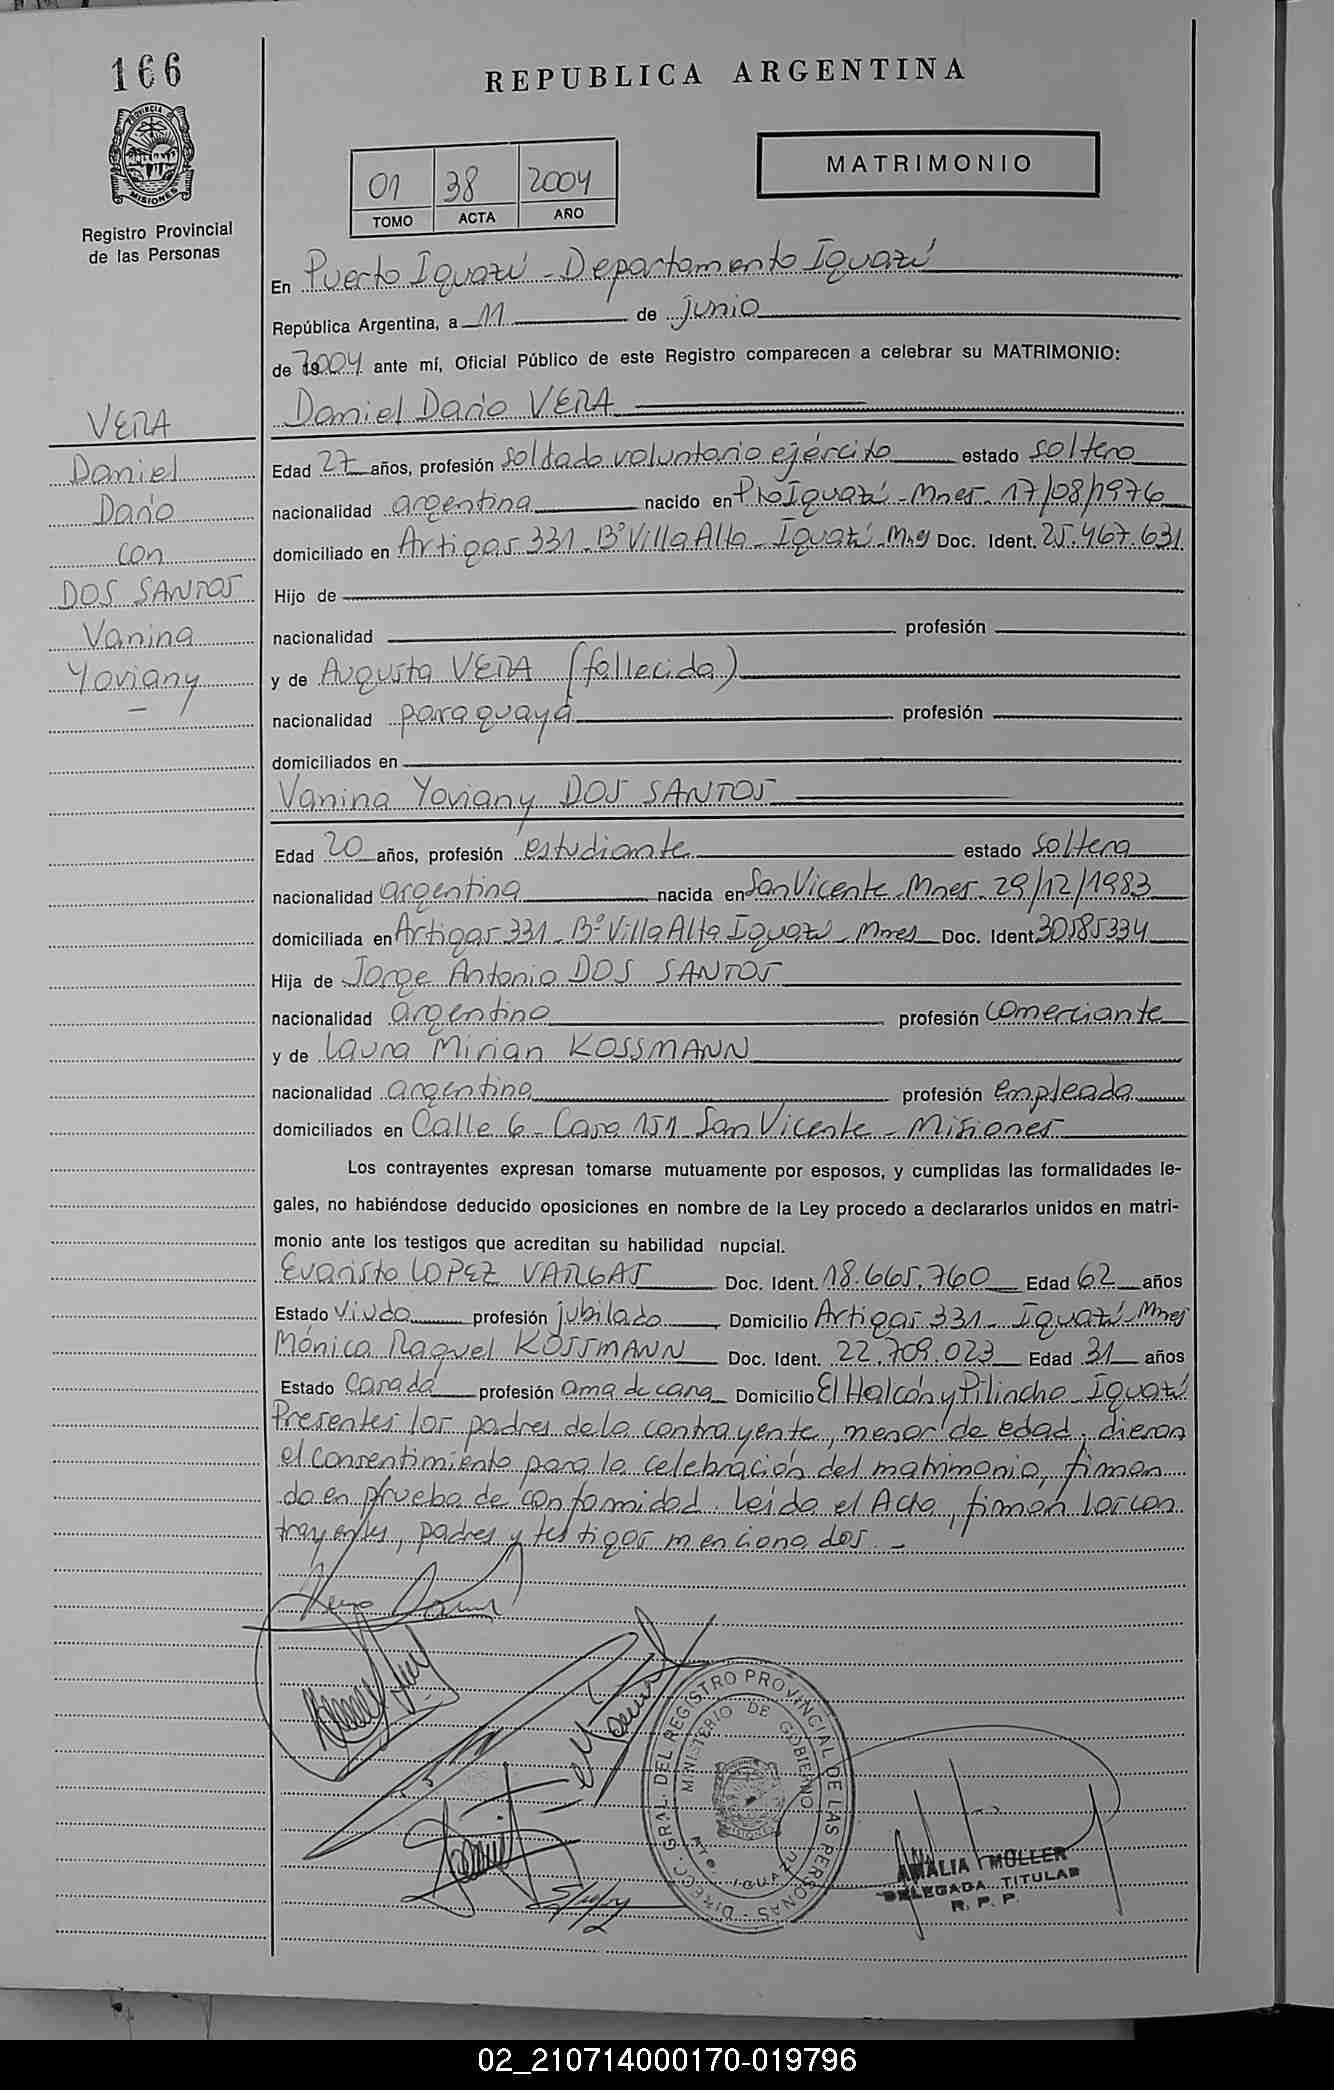 166
REPUBLICA ARGENTINA
PROVINCIA
MISIONES
Registro Provincial
de las Personas
01 38 2004
TOMO ACTA AÑO
MATRIMONIO
En Puerto Iguazú - Departamento Iguazú
República Argentina, a 11 de junio
de 2004 ante mí, Oficial Público de este Registro comparecen a celebrar su MATRIMONIO:
Daniel Darío VERA
VERA
Daniel
Darío
con
DOS SANTOS
Vanina
Yoviany
Edad 27 años, profesión soldado voluntario ejército estado soltero
nacionalidad argentina nacido en Pto Iguazú - Mnes. 17/08/1976
domiciliado en Artigas 331 - Bº Villa Alta - Iguazú - Mnes Doc. Ident. 25.467.631
Hijo de
nacionalidad profesión
y de Augusta VERA (fallecida)
nacionalidad paraguaya profesión
domiciliados en
Vanina Yoviany DOS SANTOS
Edad 20 años, profesión estudiante estado soltera
nacionalidad argentina nacida en San Vicente Mnes - 29/12/1983
domiciliada en Artigas 331 - Bº Villa Alta Iguazú - Mnes Doc. Ident 30585334
Hija de Jorge Antonio DOS SANTOS
nacionalidad argentino profesión comerciante
y de Laura Mirian KOSSMANN
nacionalidad argentina profesión empleada
domiciliados en Calle 6 - Casa 151 - San Vicente - Misiones
Los contrayentes expresan tomarse mutuamente por esposos, y cumplidas las formalidades le-
gales, no habiéndose deducido oposiciones en nombre de la Ley procedo a declararlos unidos en matri-
monio ante los testigos que acreditan su habilidad nupcial.
Evaristo LOPEZ VARGAS Doc. Ident. 18.665.760 Edad 62 años
Estado viudo profesión jubilado Domicilio Artigas 331 - Iguazú - Mnes
Mónica Raquel KOSSMANN Doc. Ident. 22.709.023 Edad 31 años
Estado casada profesión ama de casa Domicilio El Halcón y Pilincho - Iguazú
Presentes los padres de la contrayente, menor de edad, dieron
el consentimiento para la celebración del matrimonio, firman
do en prueba de conformidad. Leída el Acta, firman los con
trayentes, padres y testigos mencionados. -
DIRECC. GRAL. DEL REGISTRO PROVINCIAL DE LAS PERSONAS
MINISTERIO DE GOBIERNO
PTO. IGUAZU
AMALIA MOLLER
DELEGADA TITULAR
R. P. P.
02_210714000170-019796